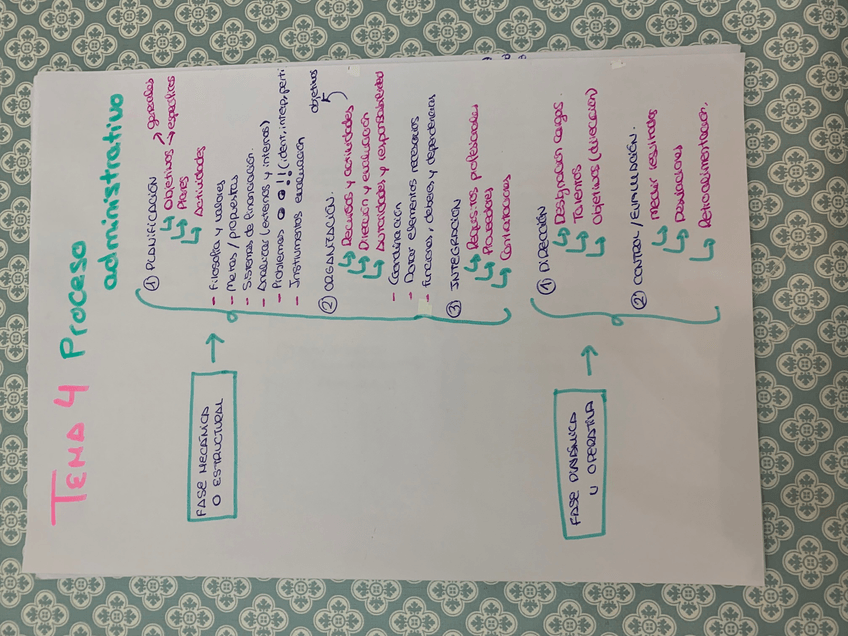 TEMA 4 Proceso
administrativo
FASE MECÁNICA
O ESTRUCTURAL
① PLANIFICACIÓN
Objetivos → generales
→ específicos
Planes
Actividades
- Filosofía y valores
- Metas / propuestas
- Sistemas de financiación.
- Analizar (externos y internos)
- Problemas !! (ident, interp, perti
- Instrumentos evaluación
② ORGANIZACIÓN.
objetivos
Recursos y actividades
Dirección y evaluación
Autoridades y responsabilidades
- Coordinación
- Dotar elementos necesarios
- Funciones, deberes y dependencias
③ INTEGRACIÓN
Requisitos profesionales
Proveedores
Contrataciones
FASE DINÁMICA
U OPERATIVA
① DIRECCIÓN
Designación cargos.
Talentos
Objetivos (dirección)
② CONTROL / EVALUACIÓN.
Medir resultados
Desviaciones
Retroalimentación.